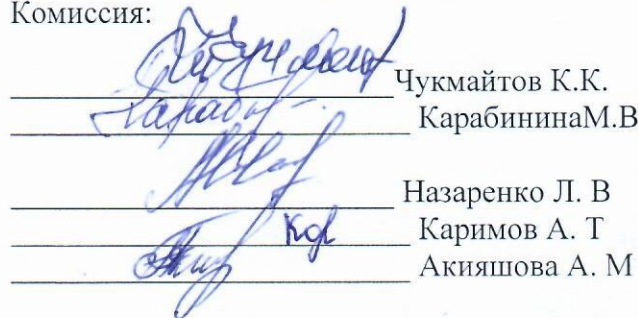 Комиссия:
Чукмайтов К.К.
КарабининаМ.В
Назаренко Л. В
Каримов А. Т
Акияшова А. М